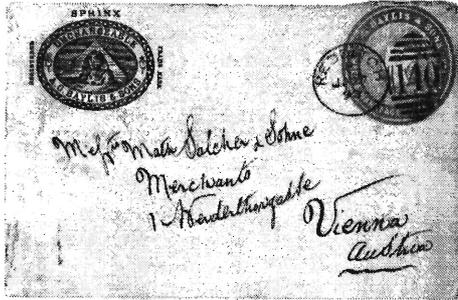 SPHINX
REGISTERED
TRADE MARK
UNCHANGEABLE
& G. BAYLIS & SONS
BAYLIS & SONS
REDDITCH
140
Messrs Math Salcher & Sohne
Merchants
1 Werderthorgasse
Vienna
Austria